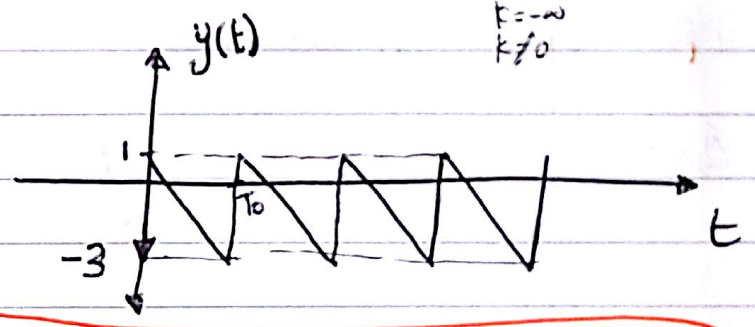 k=-∞
k≠0
y(t)
1
T₀
-3
t